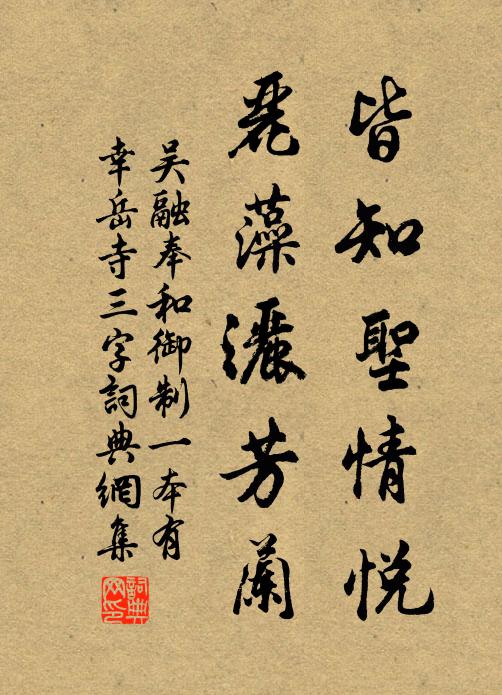 皆知聖情悅
麗藻灑芳蘭
吴融奉和御制一本有
幸岳寺三字詞典網集
詞典網印